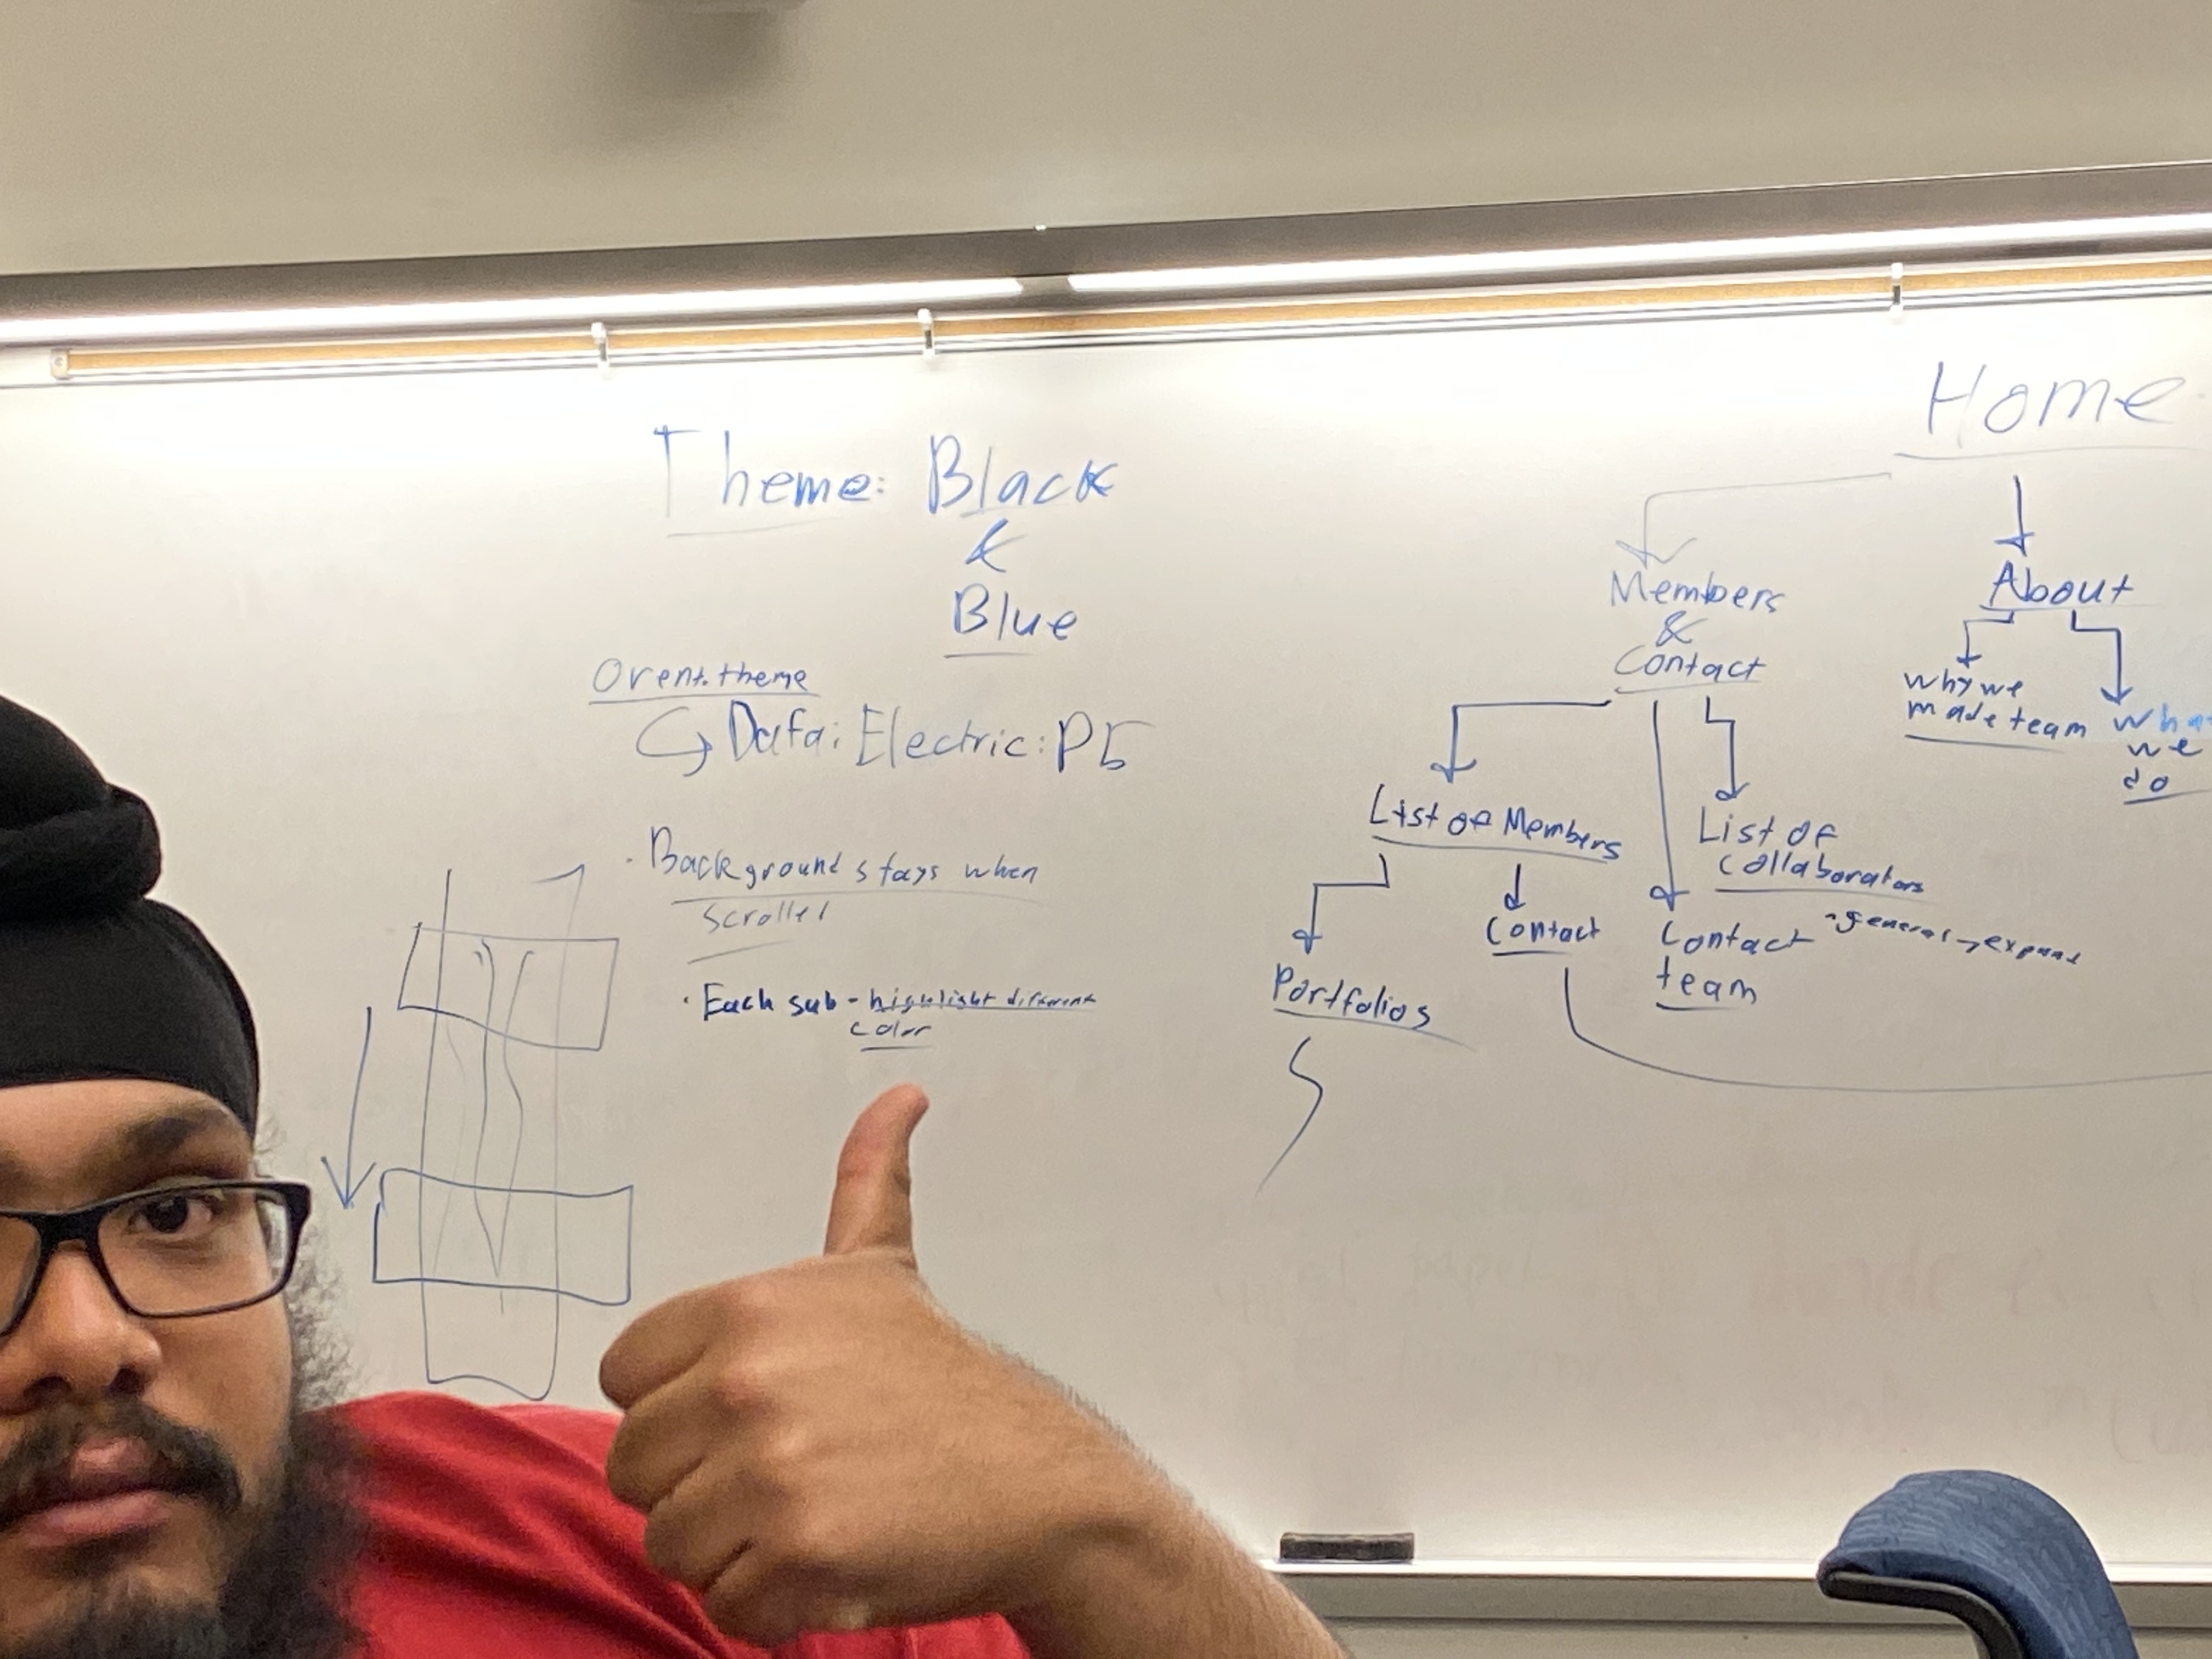 Theme: Black
&
Blue
Orent. theme
Data: Electric: P5
· Background stays when
scrolled
· Each sub - highlight different
color
Home
Members
&
Contact
About
why we
made team
What
we
do
List of Members
List of
collaborators
Portfolios
Contact
Contact
team
general → expand